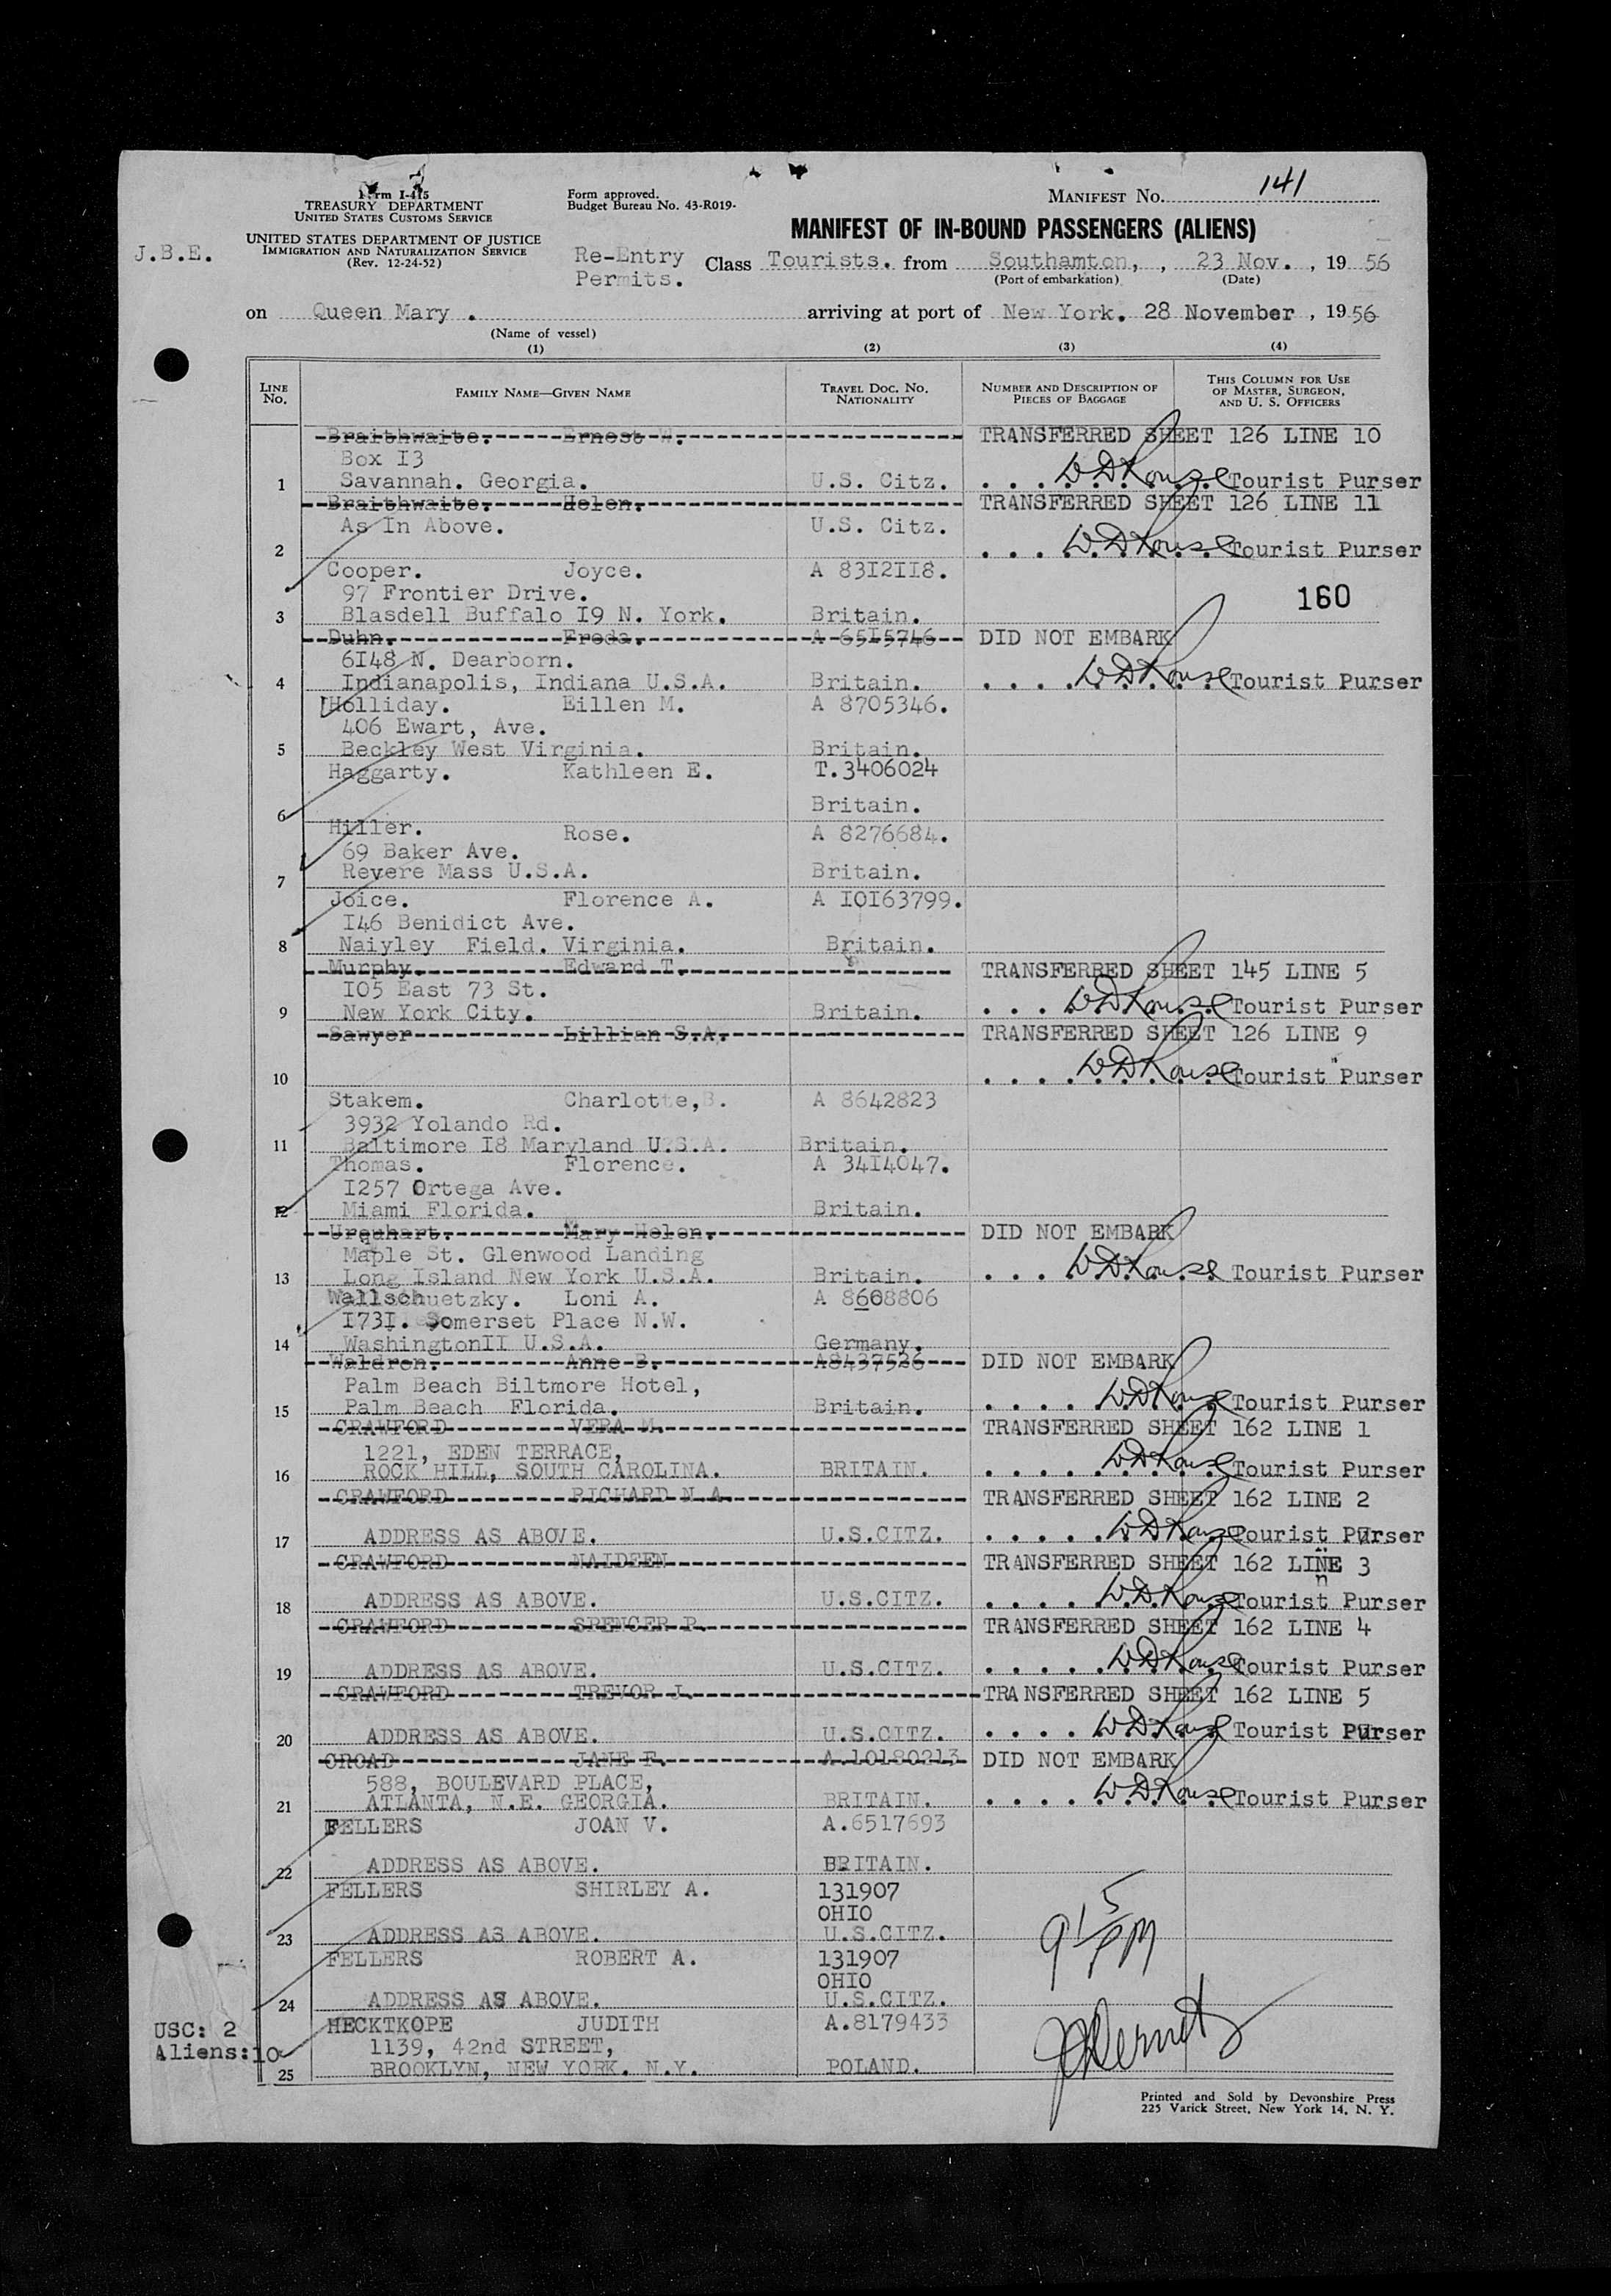 Form I-415
TREASURY DEPARTMENT
UNITED STATES CUSTOMS SERVICE
UNITED STATES DEPARTMENT OF JUSTICE
IMMIGRATION AND NATURALIZATION SERVICE
(Rev. 12-24-52)
Form approved.
Budget Bureau No. 43-R019-
MANIFEST NO. 141
MANIFEST OF IN-BOUND PASSENGERS (ALIENS)
J.B.E.
Re-Entry Permits. Class Tourists. from Southamton, , 23 Nov. , 19 56
(Port of embarkation) (Date)
on Queen Mary . arriving at port of New York. 28 November , 19 56
(Name of vessel)
(1) (2) (3) (4)
LINE NO. FAMILY NAME—GIVEN NAME TRAVEL DOC. NO. NATIONALITY NUMBER AND DESCRIPTION OF PIECES OF BAGGAGE THIS COLUMN FOR USE OF MASTER, SURGEON, AND U. S. OFFICERS
Braithwaite. Ernest W. TRANSFERRED SHEET 126 LINE 10
Box I3
1 Savannah. Georgia. U.S. Citz. . . . Tourist Purser
Braithwaite. Helen. TRANSFERRED SHEET 126 LINE 11
As In Above. U.S. Citz.
2 . . . Tourist Purser
Cooper. Joyce. A 83I2II8.
97 Frontier Drive. 160
3 Blasdell Buffalo I9 N. York. Britain.
Duhn. Freda. A 65I5746 DID NOT EMBARK
6I48 N. Dearborn.
4 Indianapolis, Indiana U.S.A. Britain. . . . . Tourist Purser
Holliday. Eillen M. A 8705346.
406 Ewart, Ave.
5 Beckley West Virginia. Britain.
Haggarty. Kathleen E. T.3406024
6 Britain.
Hiller. Rose. A 8276684.
69 Baker Ave.
7 Revere Mass U.S.A. Britain.
Joice. Florence A. A I0I63799.
I46 Benidict Ave.
8 Naiyley Field. Virginia. Britain.
Murphy. Edward T. TRANSFERRED SHEET 145 LINE 5
I05 East 73 St.
9 New York City. Britain. . . . Tourist Purser
Sawyer Lillian S.A. TRANSFERRED SHEET 126 LINE 9
10 . . . . Tourist Purser
Stakem. Charlotte,B. A 8642823
3932 Yolando Rd.
11 Baltimore I8 Maryland U.S.A. Britain.
Thomas. Florence. A 34I4047.
I257 Ortega Ave.
12 Miami Florida. Britain.
Urquhart. Mary Helen. DID NOT EMBARK
Maple St. Glenwood Landing
13 Long Island New York U.S.A. Britain. . . . Tourist Purser
Wallschuetzky. Loni A. A 8608806
I73I. Somerset Place N.W.
14 WashingtonII U.S.A. Germany.
Waldron. Anne B. A8437526 DID NOT EMBARK
Palm Beach Biltmore Hotel,
15 Palm Beach Florida. Britain. . . . . Tourist Purser
CRAWFORD VERA M. TRANSFERRED SHEET 162 LINE 1
1221, EDEN TERRACE,
16 ROCK HILL, SOUTH CAROLINA. BRITAIN. . . . . . Tourist Purser
CRAWFORD RICHARD N.A. TRANSFERRED SHEET 162 LINE 2
17 ADDRESS AS ABOVE. U.S.CITZ. . . . . . Tourist Purser
CRAWFORD NAIDEEN TRANSFERRED SHEET 162 LINE 3
18 ADDRESS AS ABOVE. U.S.CITZ. . . . . Tourist Purser
CRAWFORD SPENCER P. TRANSFERRED SHEET 162 LINE 4
19 ADDRESS AS ABOVE. U.S.CITZ. . . . . . Tourist Purser
CRAWFORD TREVOR J. TRANSFERRED SHEET 162 LINE 5
20 ADDRESS AS ABOVE. U.S.CITZ. . . . . Tourist Purser
CROAD JANE F. A.10180213 DID NOT EMBARK
588, BOULEVARD PLACE,
21 ATLANTA, N.E. GEORGIA. BRITAIN. . . . . Tourist Purser
FELLERS JOAN V. A.6517693
22 ADDRESS AS ABOVE. BRITAIN.
FELLERS SHIRLEY A. 131907
OHIO
23 ADDRESS AS ABOVE. U.S.CITZ. 9 15 PM
FELLERS ROBERT A. 131907
OHIO
24 ADDRESS AS ABOVE. U.S.CITZ.
HECKTKOPE JUDITH A.8179433
1139, 42nd STREET,
25 BROOKLYN, NEW YORK. N.Y. POLAND.
USC: 2
Aliens:10
Printed and Sold by Devonshire Press
225 Varick Street, New York 14, N. Y.